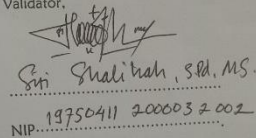 Validator,
Siti Shalihah, S.Pd, MS.
NIP. 19750411 2000032002